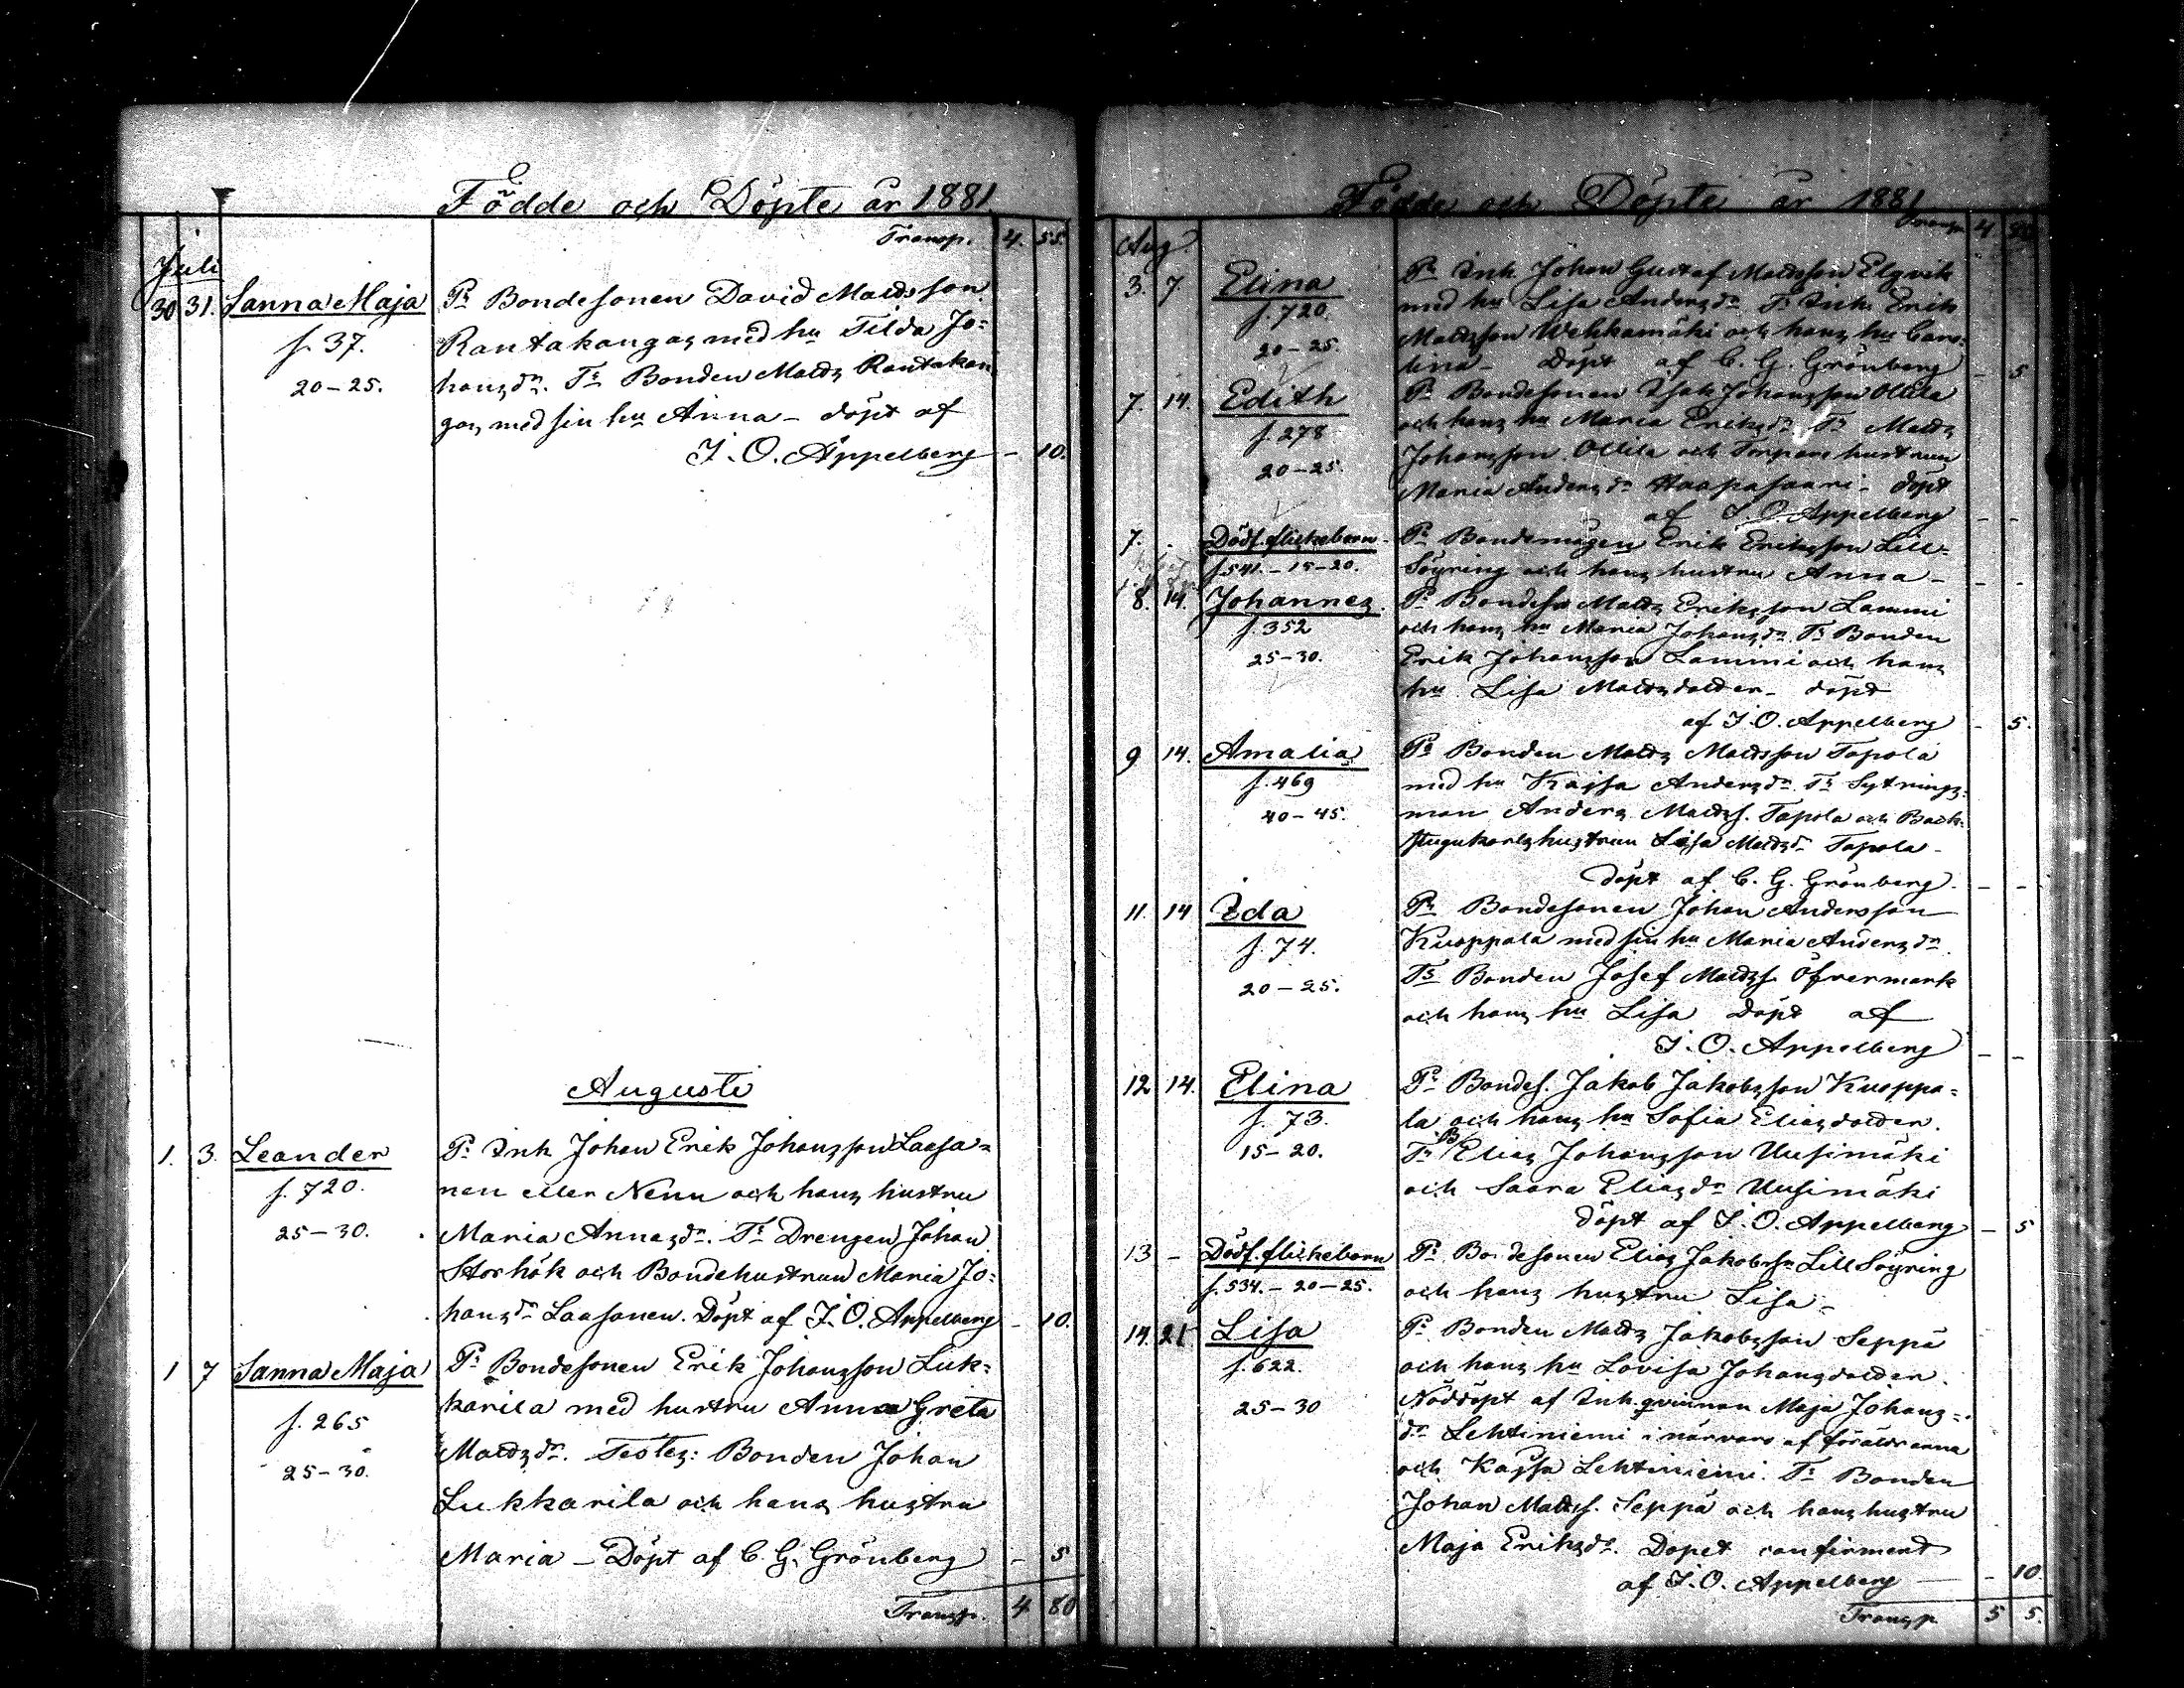 Födde och Döpte år 1881
Transp. 4. 55
Juli
30 31. Sanna Maja Pr Bondesonen David Mattsson
f. 37. Rantakangas med hu Tilda Jo=
20-25. hansdr. Tr Bonden Matts Rantakan
gas med sin hu Anna - döpt af
I. O. Appelberg - 10.
Augusti
1. 3. Leander Pr Inh Johan Erik Johansson Laasa=
f. 720. nen eller Nenu och hans hustru
25-30. Maria Annasdr. Tr Drengen Johan
Storhök och Bondehustrun Maria Jo=
hansdr Laasanen. Döpt af I. O. Appelberg - 10.
1 7 Sanna Maja Pr Bondesonen Erik Johansson Luk=
f. 265 karila med hustru Anna Greta
25-30. Mattsdr. Testes: Bonden Johan
Lukkarila och hans hustru
Maria - Döpt af C. G. Grönberg - 5
Transp. 4 80
Födde och Döpte år 1881
Transp 4 80
Aug.
3. 7. Elina Pr Inh Johan Gustaf Mattsson Elgvik
f. 720. med hu Lisa Andersdr. Tr Inh. Erik
20-25. Mattsson Wehkamäki och hans hu Caro=
lina - Döpt af C. G. Grönberg - 5
7. 14. Edith Pr Bondesonen Isak Johansson Ollila
f. 278 och hans hu Maria Eriksdr Tr Matts
20-25. Johansson Ollila och Torpare hustrun
Maria Andersdr Haapasaari - döpt
af I. O. Appelberg - -
7. - Dödf. flickebarn Pr Bondemågen Erik Eriksson Lill=
f. 541. - 15-20. Söyring och hans hustru Anna - - -
8. 14. Johannes Pr Bondeson Matts Eriksson Lammi
f. 352 och hans hu Maria Johansdr Tr Bonden
25-30. Erik Johansson Lammi och hans
hu Lisa Mattsdotter - döpt
af I. O. Appelberg - 5.
9 14. Amalia Pr Bonden Matts Mattsson Tapola
f. 469 med hu Kajsa Andersdr. Tr Sytnings=
40-45. man Anders Mattss. Tapola och Back=
stugukarlshustrun Lisa Mattsdr Tapola -
döpt af C. G. Grönberg. - -
11. 14 Ida Pr Bondesonen Johan Andersson
f. 74. Kuoppala med sin hu Maria Andersdr
20-25. Ts Bonden Josef Mattss. Öfvermark
och hans hu Lisa döpt af
I. O. Appelberg - -
12 14. Elina Pr Bondes. Jakob Jakobsson Kuoppa=
f. 73. la och hans hu Sofia Eliasdotter.
15-20. Tr B Elias Johansson Uusimäki
och Saara Eliasdr Uusimäki
döpt af I. O. Appelberg - 5
13 - Dödf. flickebarn Pr Bondesonen Elias Jakobsson Lill Söyring
f. 534. - 20-25. och hans hustru Lisa -
14. 21 Lisa Pr Bonden Matts Jakobsson Seppä
f. 622. och hans hu Lovisa Johansdotter.
25-30 Nöddöpt af Inh. qvinnan Maja Johans=
dr Lehtiniemi i närvaro af föräldrarna
och Kajsa Lehtiniemi. Tr Bonden
Johan Mattss. Seppä och hans hustru
Maja Eriksdr. Dopet confirmerat
af I. O. Appelberg - 10
Transp 5 5.